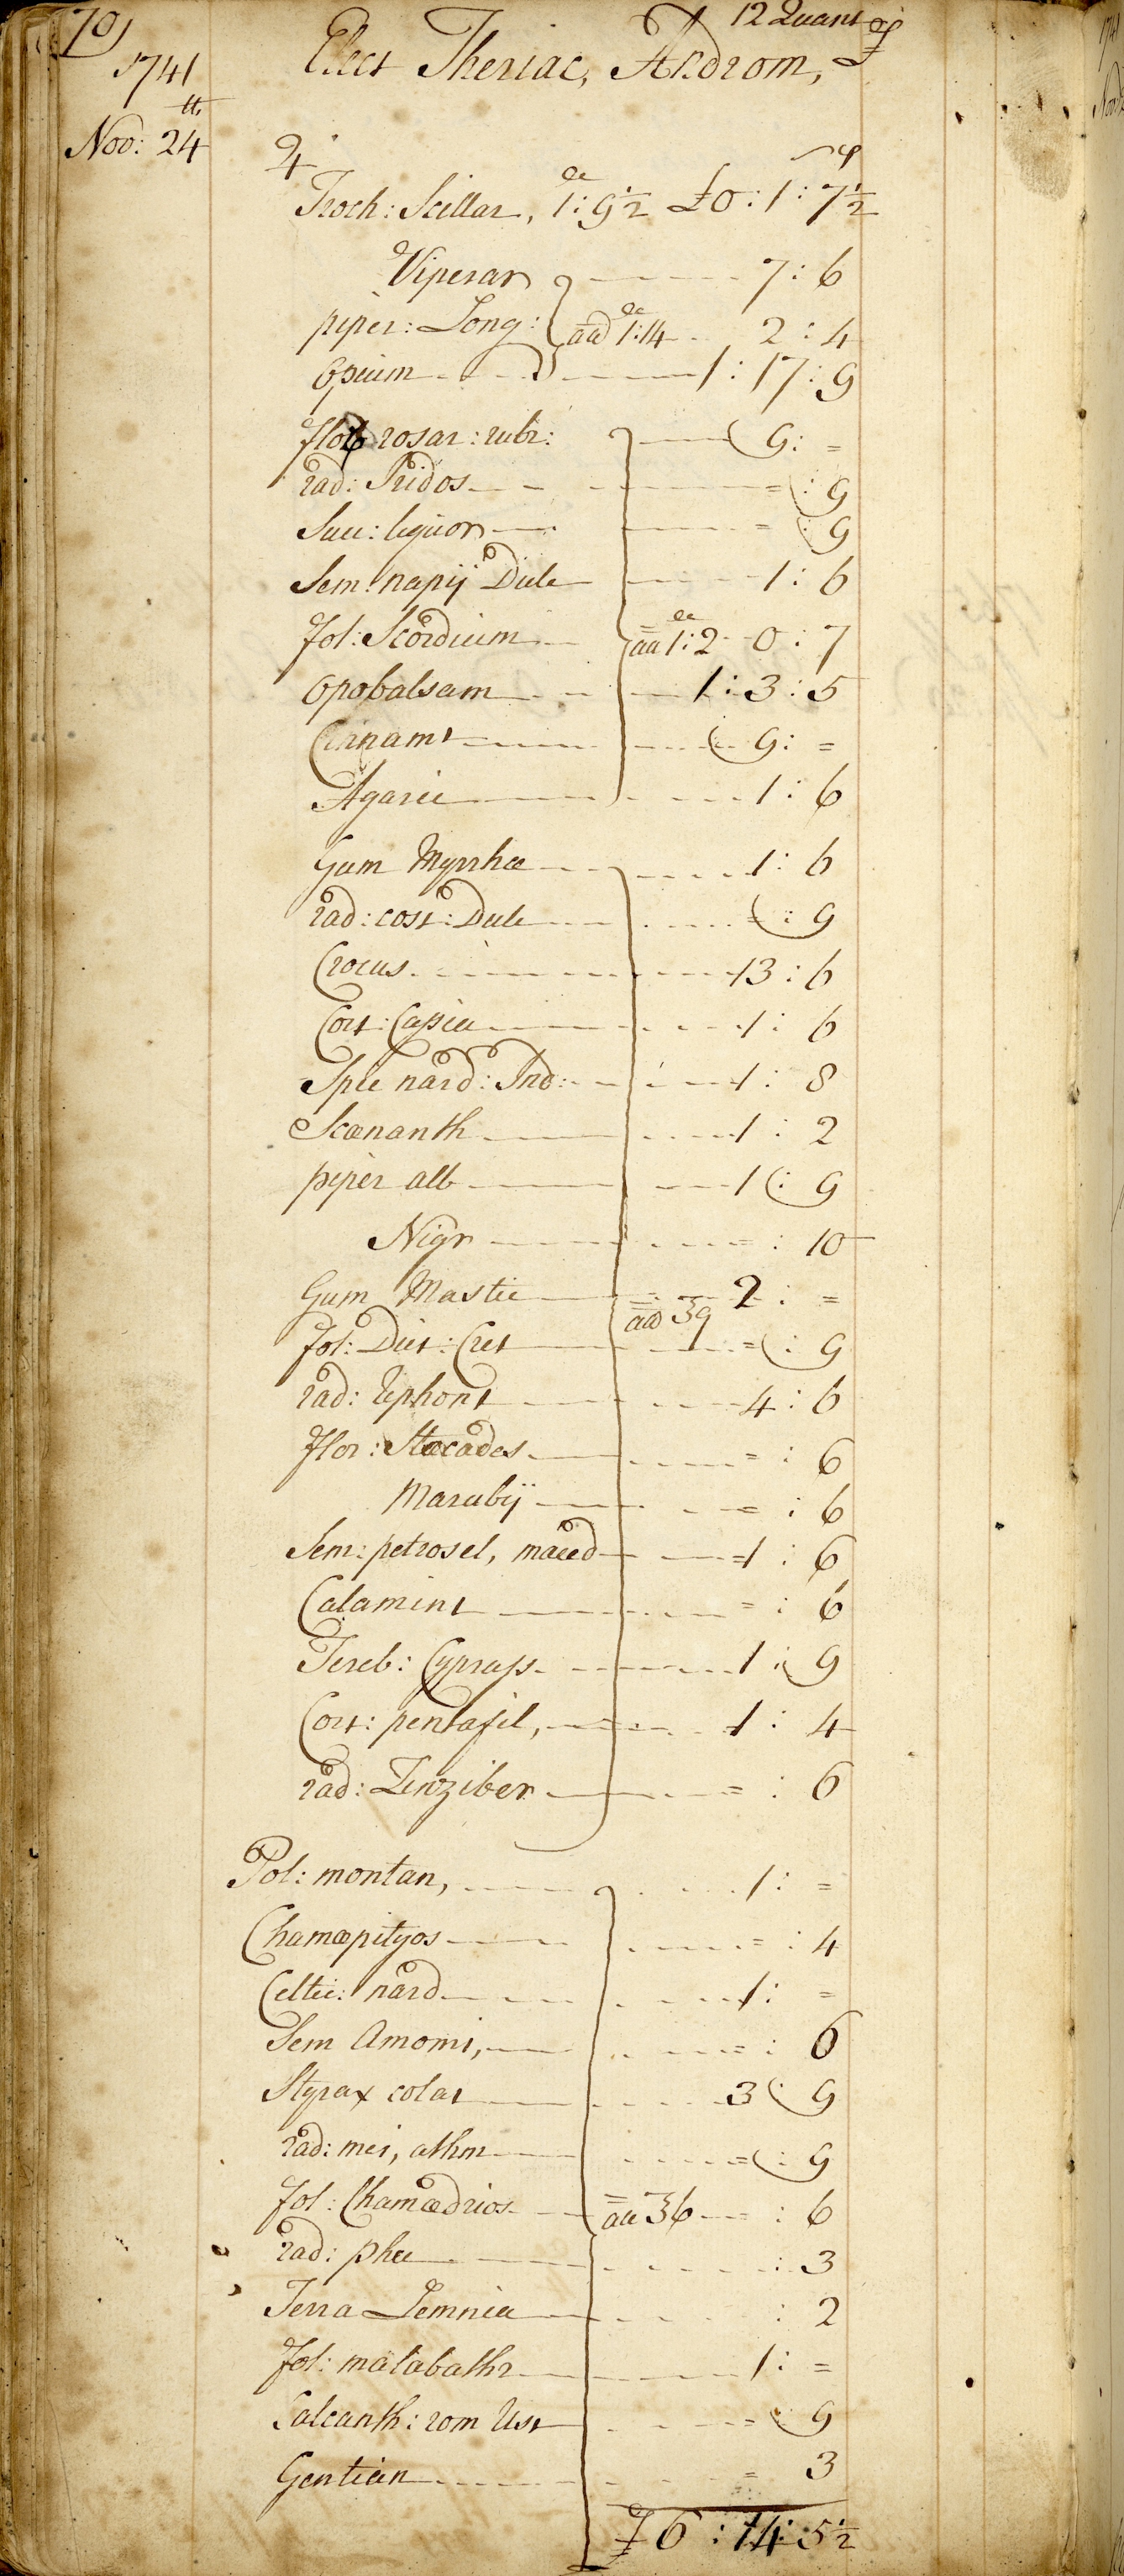 70)
1741
Nov: 24
12 Quant
Elect Theriac, Androm,
Troch: Scillar, 1: 9½ £0 : 1 : 7½
Viperar 7 : 6
piper: Long: aa 1:14 2 : 4
Opium 1 : 17 : 9
flor rosar: rubr: 9 : =
rad: Iridos = : 9
Succ: liquor = : 9
Sem: napij Dulc 1 : 6
fol: Scordium aa 1:2 0 : 7
Opobalsam 1 : 3 : 5
Cinnamt 9 : =
Agaric 1 : 6
Gum Myrrhæ 1 : 6
rad: cost: Dulc = : 9
Crocus 13 : 6
Cort: Cassia 1 : 6
Spic nard: Ind: 1 : 8
Scænanth 1 : 2
piper alb 1 : 9
Nigr = : 10
Gum Mastic 2 : =
aa ʒ9
fol: Dict: Cret = : 9
rad: rhpont 4 : 6
flor: Stæcados = : 6
Marubij = : 6
Sem: petrosel, maced =1 : 6
Calamint = : 6
Tereb: Cyprass 1 : 9
Cort: pentafil, 1 : 4
rad: Zinziber = : 6
Pol: montan, 1 : =
Chamæpityos = : 4
Celtic: nard 1 : =
Sem Amomi, = : 6
Styrax colat 3 : 9
rad: mei, athm = : 9
fol: Chamædrios aa ʒ6 = : 6
rad: phu : 3
Terra Lemnia : 2
fol: malabathr 1 : =
Calcanth: rom Ust = 9
Gentian = 3
£ 6 : 14 : 5½